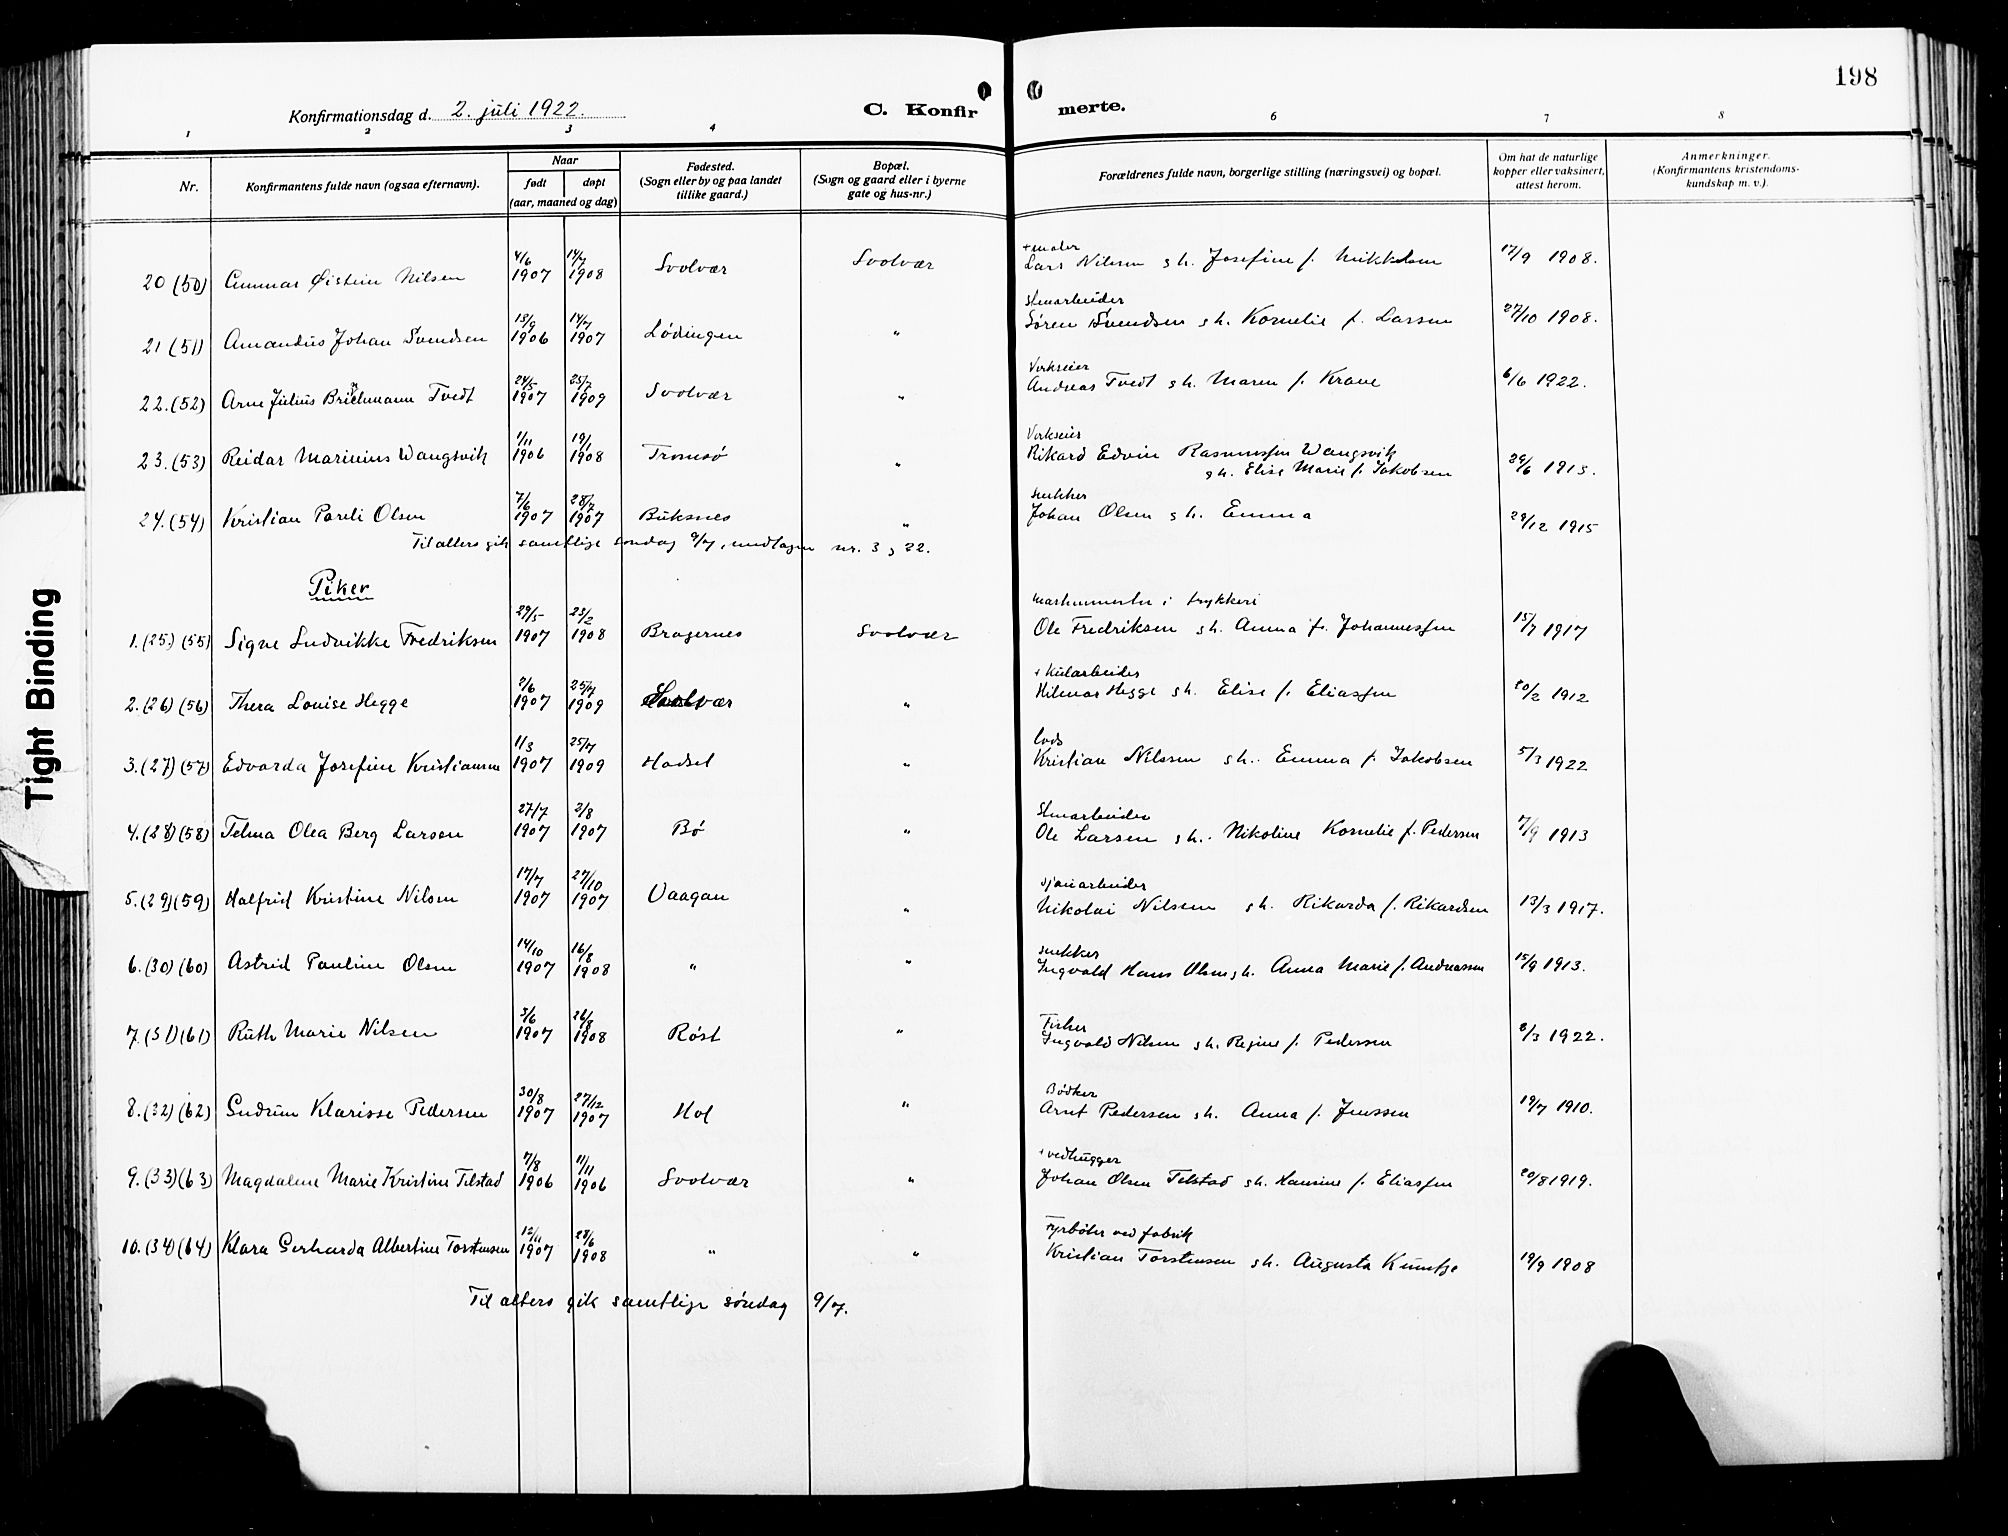 198
Konfirmationsdag d. 2. juli 1922.
C. Konfir
merte.
1 2 3 4 6 7 8
Nr.
Konfirmantens fulde navn (ogsaa efternavn).
Naar
født døpt
(aar, maaned og dag)
Fødested.
(Sogn eller by og paa landet
tillike gaard.)
Bopæl.
(Sogn og gaard eller i byerne
gate og hus-nr.)
Forældrenes fulde navn, borgerlige stilling (næringsvei) og bopæl.
Om hat de naturlige
kopper eller vaksinert,
attest herom.
Anmerkninger.
(Konfirmantens kristendoms-
kundskap m. v.).
20 (50) Gunnar Øistein Nilsen 4/6 1907 14/7 1908 Svolvær Svolvær + maler Lars Nilsen g h. Josefine f. Mikkelsen 17/9 1908.
21 (51) Amandus Johan Svendsen 13/9 1906 14/7 1907 Lødingen " Stenarbeider Søren Svendsen g h. Kornelie f. Larsen 27/10 1908.
22. (52) Arne Julius Tvedt 24/5 1907 25/7 1909 Svolvær " Verkseier Andreas Tvedt g h. Maren f. Krane 6/6 1922.
23. (53) Reidar Marinius Wangsvik 1/11 1906 19/1 1908 Tromsø " Verkseier Rikard Edvin Rasmussen Wangsvik
g h. Elise Marie f. Jakobsen 1913.
24. (54) Kristian Pareli Olsen 7/6 1907 28/7 1907 Buksnes " snekker Johan Olsen g h. Emma 29/12 1915
Til alters gik samtlige søndag 9/7, undtagen nr. 3 og 22.
Piker
1. (25) (55) Signe Ludvikke Fredriksen 29/5 1907 23/2 1908 Bragernes Svolvær maskinmester i trykkeri Ole Fredriksen g h. Anna f. Johannessen 15/7 1917
2. (26) (56) Thera Louise Hegge 2/6 1907 25/7 1909 Svolvær " + Kularbeider Hilmar Hegge g h. Elise f. Eliassen 20/2 1912
3. (27) (57) Edvarda Josefine Kristiansen 1/3 1907 25/7 1909 Hadsel " lods Kristian Nilssen g h. Emma f. Jakobsen 5/3 1922
4. (28) (58) Telma Olea Berg Larsen 27/7 1907 2/8 1907 Bø " Stenarbeider Ole Larsen g h. Nikoline Kornelie f. Pedersen 7/9 1913
5. (29) (59) Halfrid Kristine Nilsen 17/7 1907 27/10 1907 Vaagan " sjauarbeider Nikolai Nilsen g h. Rikarda f. Rikardsen 13/3 1917.
6. (30) (60) Astrid Pauline Olsen 14/10 1907 16/8 1908 " " snekker Ingvald Hans Olsen g h. Anna Marie f. Andreassen 15/9 1913.
7. (31) (61) Ruth Marie Nilsen 3/6 1907 26/8 1908 Røst " Fisker Ingvald Nilsen g h. Regine f. Pedersen 8/3 1922.
8. (32) (62) Gudrun Klarisse Pedersen 30/8 1907 27/12 1907 Hol " Bødker Arnt Pedersen g h. Anna f. Jenssen 19/7 1910.
9. (33) (63) Magdalene Marie Kristine Tilstad 7/8 1906 11/11 1906 Svolvær " + vedhugger Johan Olsen Tilstad g h. Hansine f. Eliassen 20/8 1919.
10. (34) (64) Klara Gerharda Albertine Torstensen 12/11 1907 28/6 1908 " " Fyrbøter ved fabrik Kristian Torstensen g h. Augusta 19/9 1908
Til alters gik samtlige søndag 9/7.
Tight Binding